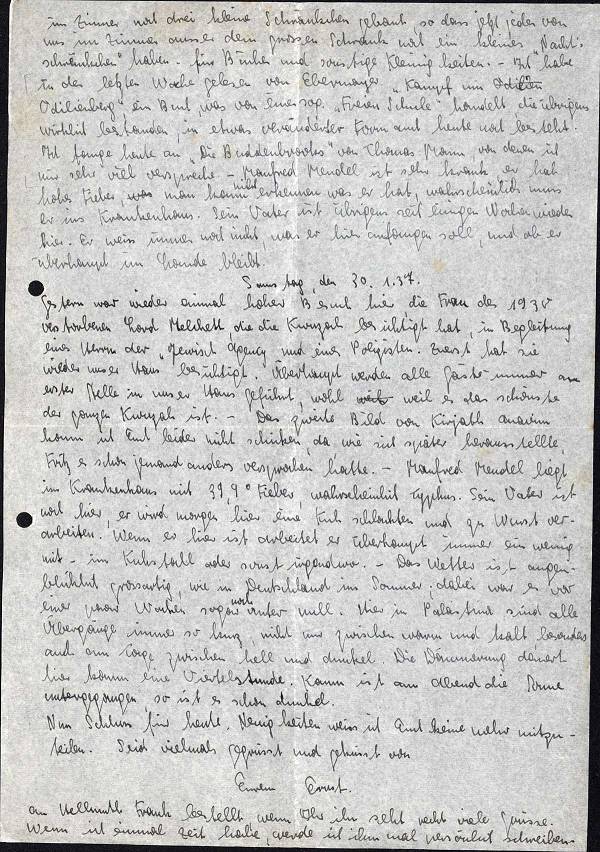 im Zimmer noch drei kleine Schränkchen gebaut so dass jetzt jeder von
uns im Zimmer ausser dem grossen Schrank noch ein kleines "Nacht-
schränkchen" haben. für Bücher und sonstige Kleinigkeiten. - Ich habe
in der letzten Woche gelesen von Ebermayer "Kampf um Odilien
Odilienberg", ein Buch, was von einer sog. "Freien Schule" handelt, die übrigens
wirklich bestanden, in etwas veränderter Form auch heute noch besteht.
Ich fange heute an "Die Buddenbrooks" von Thomas Mann, von denen ich
mir sehr viel verspreche - Manfred Mendel ist sehr krank, er hat
hohes Fieber, was man kann nicht erkennen was er hat, wahrscheinlich muss
er ins Krankenhaus. Sein Vater ist übrigens seit einigen Wochen wieder
hier. Er weiss immer noch nicht, was er hier anfangen soll, und ob er
überhaupt im Lande bleibt.
Samstag, den 30.1.37.
Gestern war wieder einmal hoher Besuch hier die Frau des 1930
verstorbenen Lord Melchett die die Kwuzah besichtigt hat, in Begleitung
eines Herrn der "Jewish Agency" und eines Polizisten. Zuerst hat sie
wieder unser Haus besichtigt. Überhaupt werden alle Gäste immer an
erster Stelle in unser Haus geführt, wohl weil es das schönste
der ganzen Kwuzah ist. - Das zweite Bild von Kirjath Anavim
kann ich Euch leider nicht schicken, da wie sich später herausstellte,
Fritz es schon jemand anders versprochen hatte. - Manfred Mendel liegt
im Krankenhaus mit 39,9° Fieber, wahrscheinlich Typhus. Sein Vater ist
noch hier, er wird morgen hier eine Kuh schlachten und zu Wurst ver-
arbeiten. Wenn er hier ist arbeitet er überhaupt immer ein wenig
mit - im Kuhstall oder sonst irgendwo. - Das Wetter ist augen-
blicklich grossartig, wie in Deutschland im Sommer; dabei war es vor
einer paar Wochen sogar noch unter null. Hier in Palästina sind alle
Übergänge immer so kurz, nicht nur zwischen warm und kalt besonders
auch am Tage zwischen hell und dunkel. Die Dämmerung dauert
hier kaum eine Viertelstunde. Kaum ist am Abend die Sonne
untergegangen, so ist es schon dunkel.
Nun Schluss für heute. Neuigkeiten weiss ich Euch keine mehr mitzu-
teilen. Seid vielmals gegrüsst und geküsst von
Eurem Ernst.
An Hellmuth Frank bestellt wenn Ihr ihn seht recht viele Grüsse.
Wenn ich einmal Zeit habe, werde ich ihm mal persönlich schreiben.